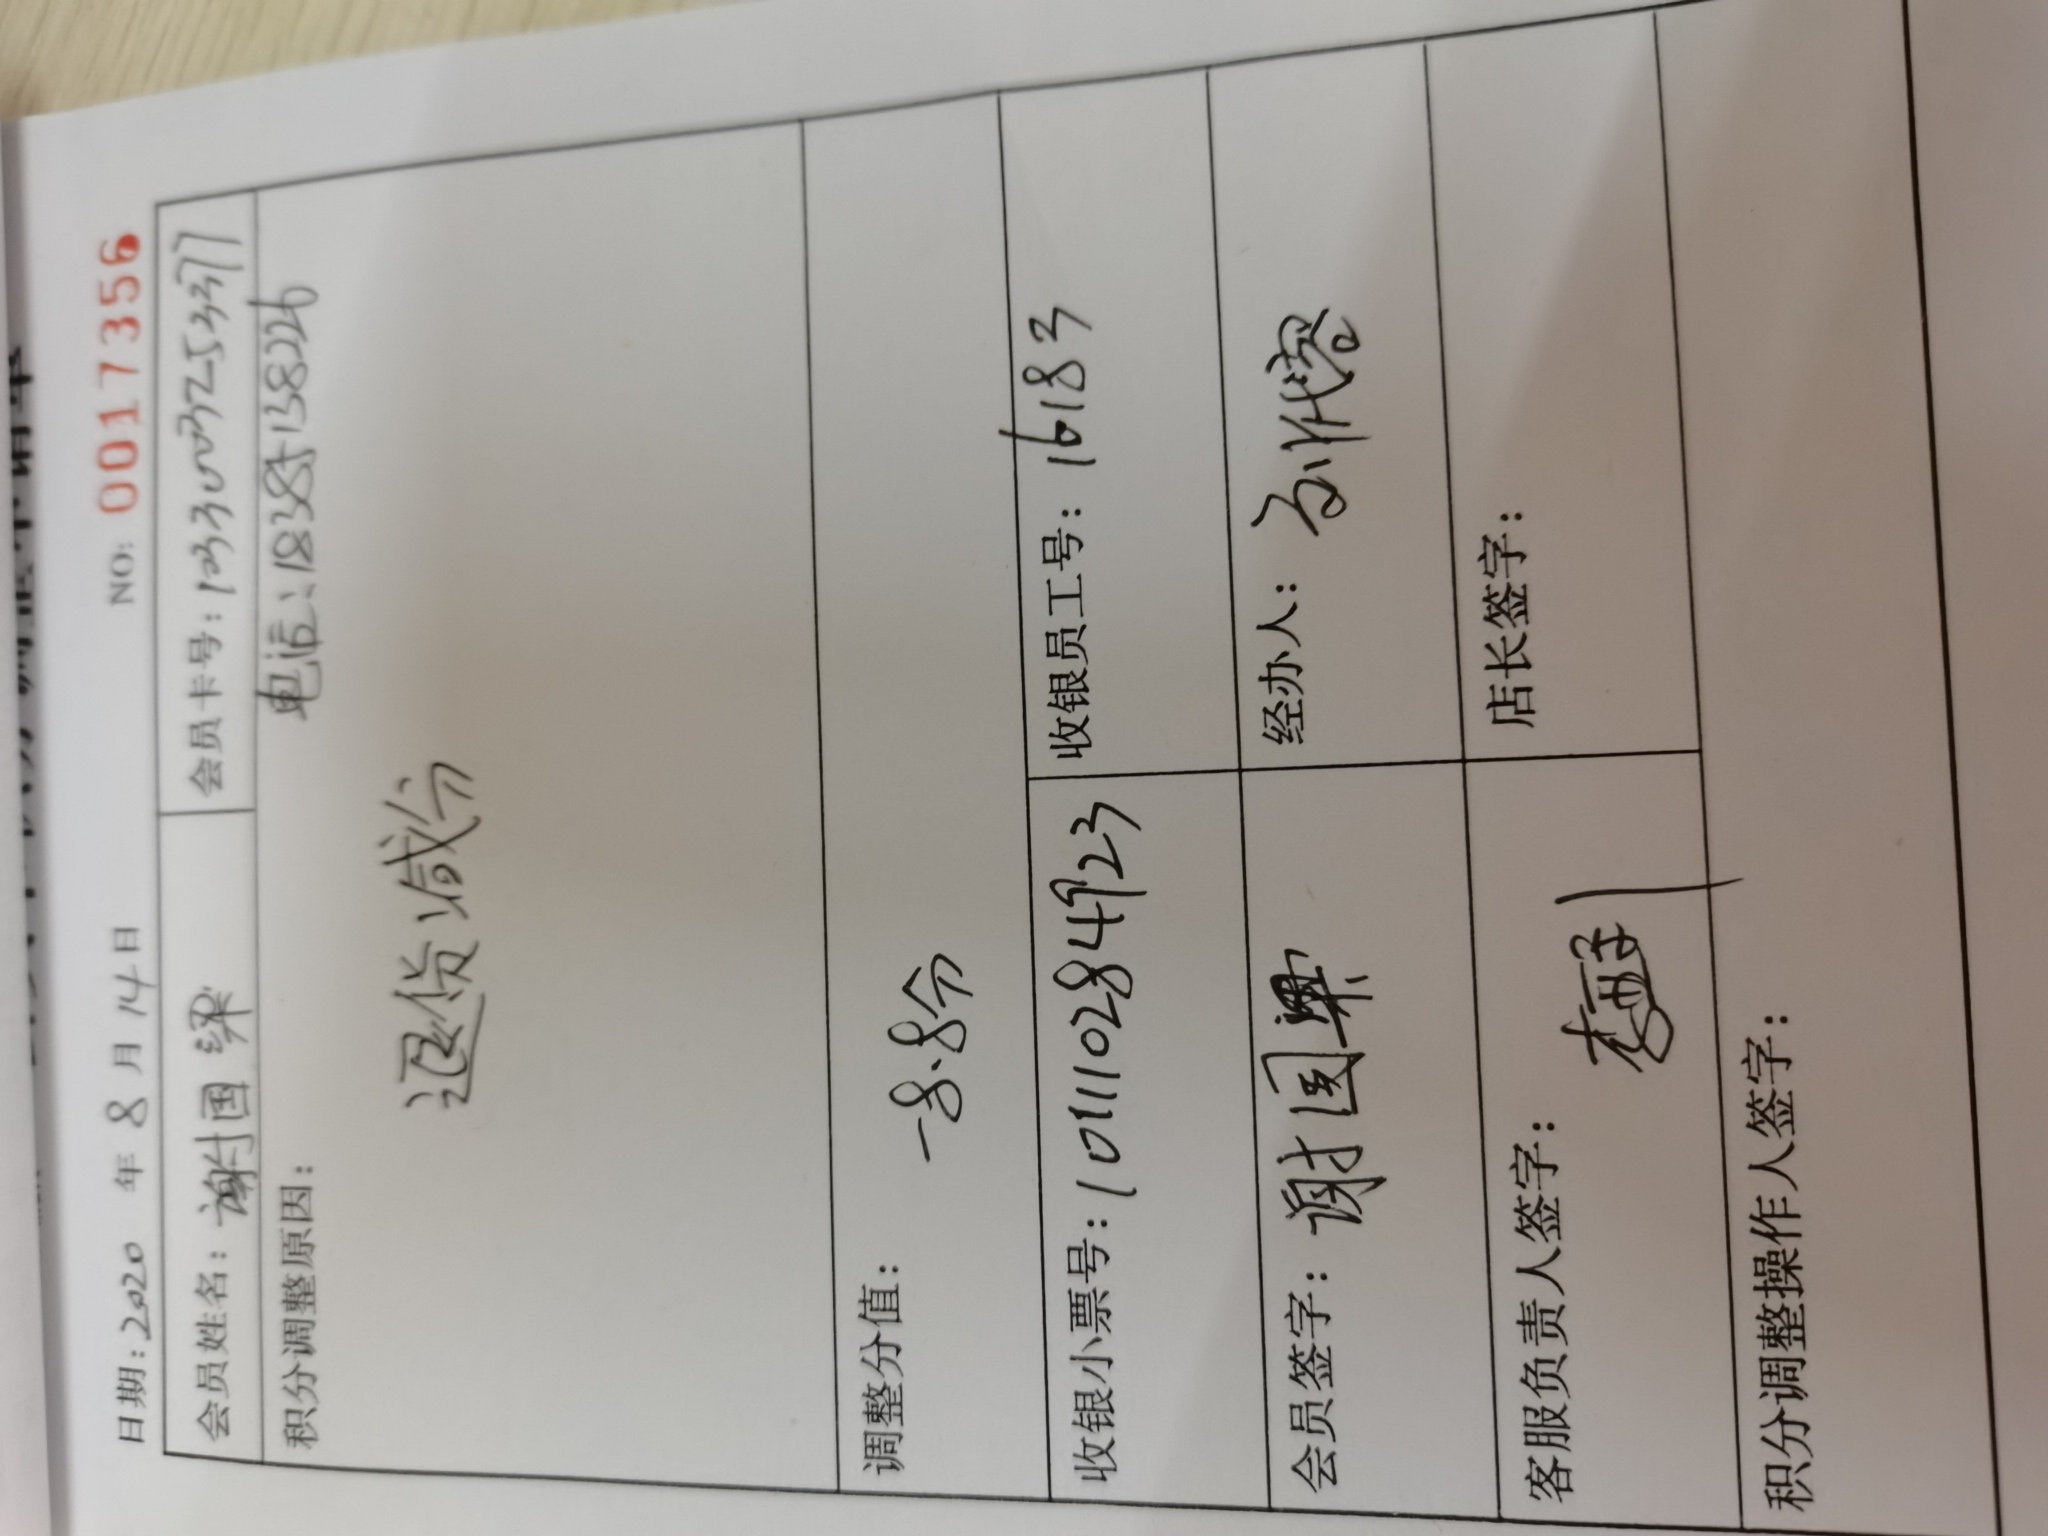 NO: 0017356
日期:2020 年 8 月 14 日
会员姓名: 谢国梁 会员卡号:
积分调整原因: 电话: 18385138226
退货减分
调整分值: -8.8分
收银小票号: 1011102844923 收银员工号: 16183
会员签字: 谢国梁 经办人:
客服负责人签字: 店长签字:
积分调整操作人签字: